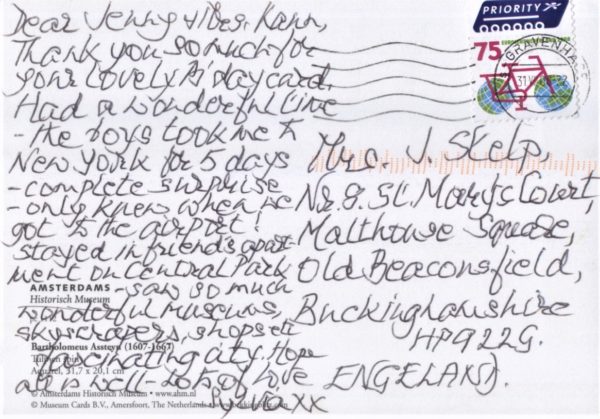 Dear Jenny
Thank you so much for
your lovely B'day card.
Had a wonderful time
- the boys took me to
New York for 5 days
- complete surprise
- only knew when we
got to the airport!
stayed in friends apart-
ment on Central Park
- saw so much
wonderful museums,
skyscrapers, shops etc
fascinating city. Hope
all is well - Lots of love
xx
PRIORITY
75
'S GRAVENHA
Mrs. J. Skelp,
Nr. 8. St. Mary's Court,
Malthouse Square,
Old Beaconsfield,
Buckinghamshire
HP9 2LG.
ENGELAND.
AMSTERDAMS
Historisch Museum
Bartholomeus Assteyn (1607-1667)
Tulpen
Aquarel, 31,7 x 20,1 cm
© Amsterdams Historisch Museum • www.ahm.nl
© Museum Cards B.V., Amersfoort, The Netherlands